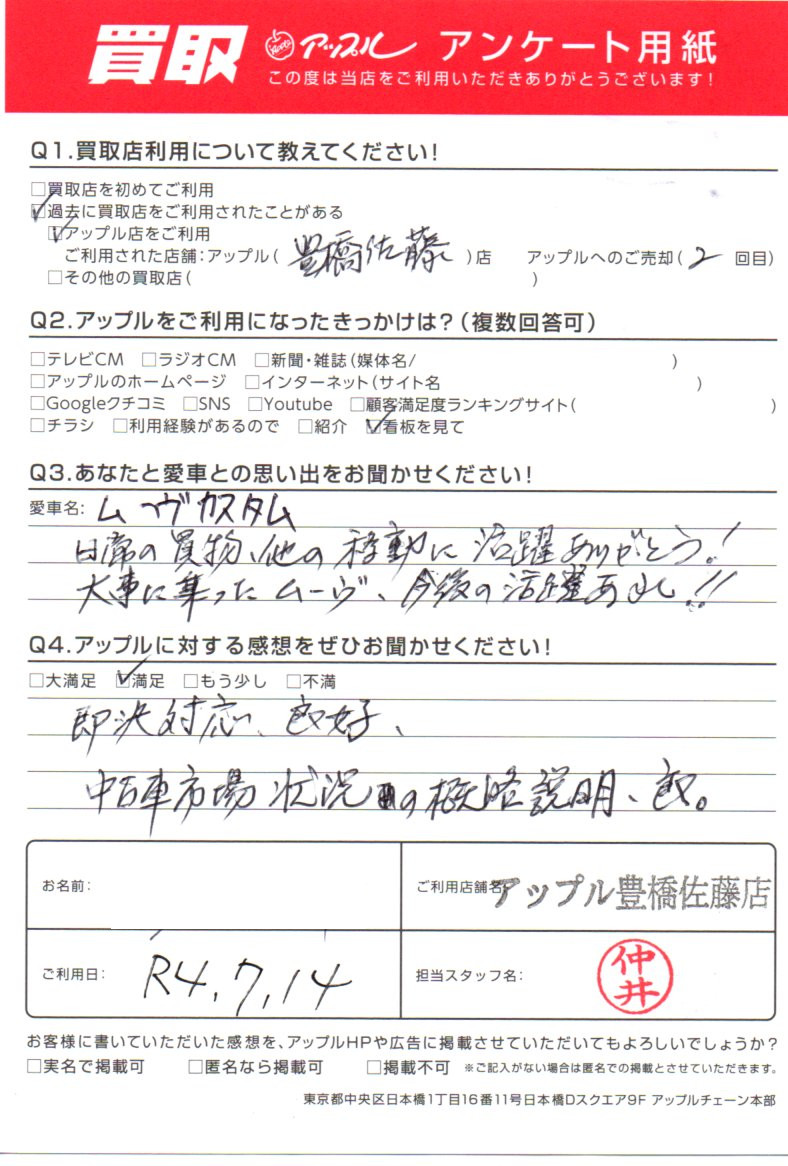 買取 アップル アンケート用紙
この度は当店をご利用いただきありがとうございます!
Q1.買取店利用について教えてください!
□買取店を初めてご利用
☑過去に買取店をご利用されたことがある
☑アップル店をご利用
ご利用された店舗:アップル(豊橋佐藤)店 アップルへのご売却(2回目)
□その他の買取店( )
Q2.アップルをご利用になったきっかけは?(複数回答可)
□テレビCM □ラジオCM □新聞・雑誌(媒体名/ )
□アップルのホームページ □インターネット(サイト名 )
□Googleクチコミ □SNS □Youtube □顧客満足度ランキングサイト( )
□チラシ □利用経験があるので □紹介 ☑看板を見て
Q3.あなたと愛車との思い出をお聞かせください!
愛車名: ムーヴカスタム
日常の買物、他の移動に活躍ありがとう!
大事に乗ったムーヴ、今後の活躍あれ!!
Q4.アップルに対する感想をぜひお聞かせください!
□大満足 ☑満足 □もう少し □不満
即決対応、良好、
中古車市場状況の概略説明、良。
お名前:
ご利用店舗名: アップル豊橋佐藤店
ご利用日: R4.7.14
担当スタッフ名: 仲井
お客様に書いていただいた感想を、アップルHPや広告に掲載させていただいてもよろしいでしょうか?
□実名で掲載可 □匿名なら掲載可 □掲載不可 ※ご記入がない場合は匿名での掲載とさせていただきます。
東京都中央区日本橋1丁目16番11号日本橋Dスクエア9F アップルチェーン本部